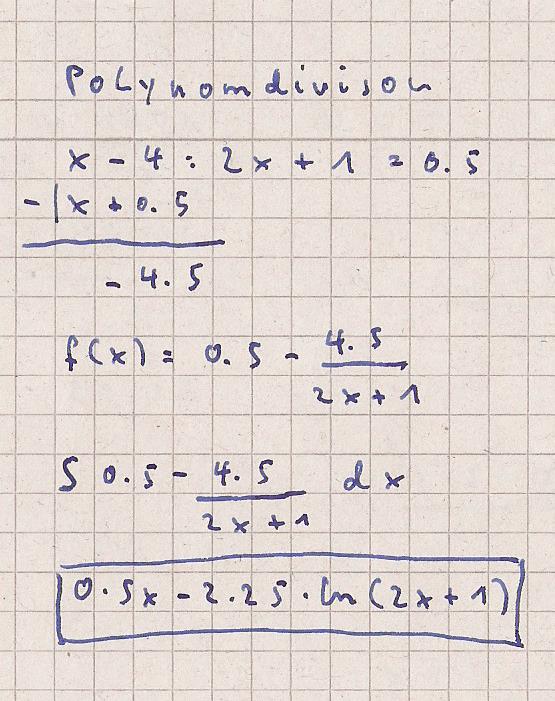 Polynomdivison
x - 4 : 2x + 1 = 0.5
-|x + 0.5
- 4.5
f(x) = 0.5 - 4.5/(2x + 1)
∫ 0.5 - 4.5/(2x + 1) dx
0.5x - 2.25 · ln(2x + 1)